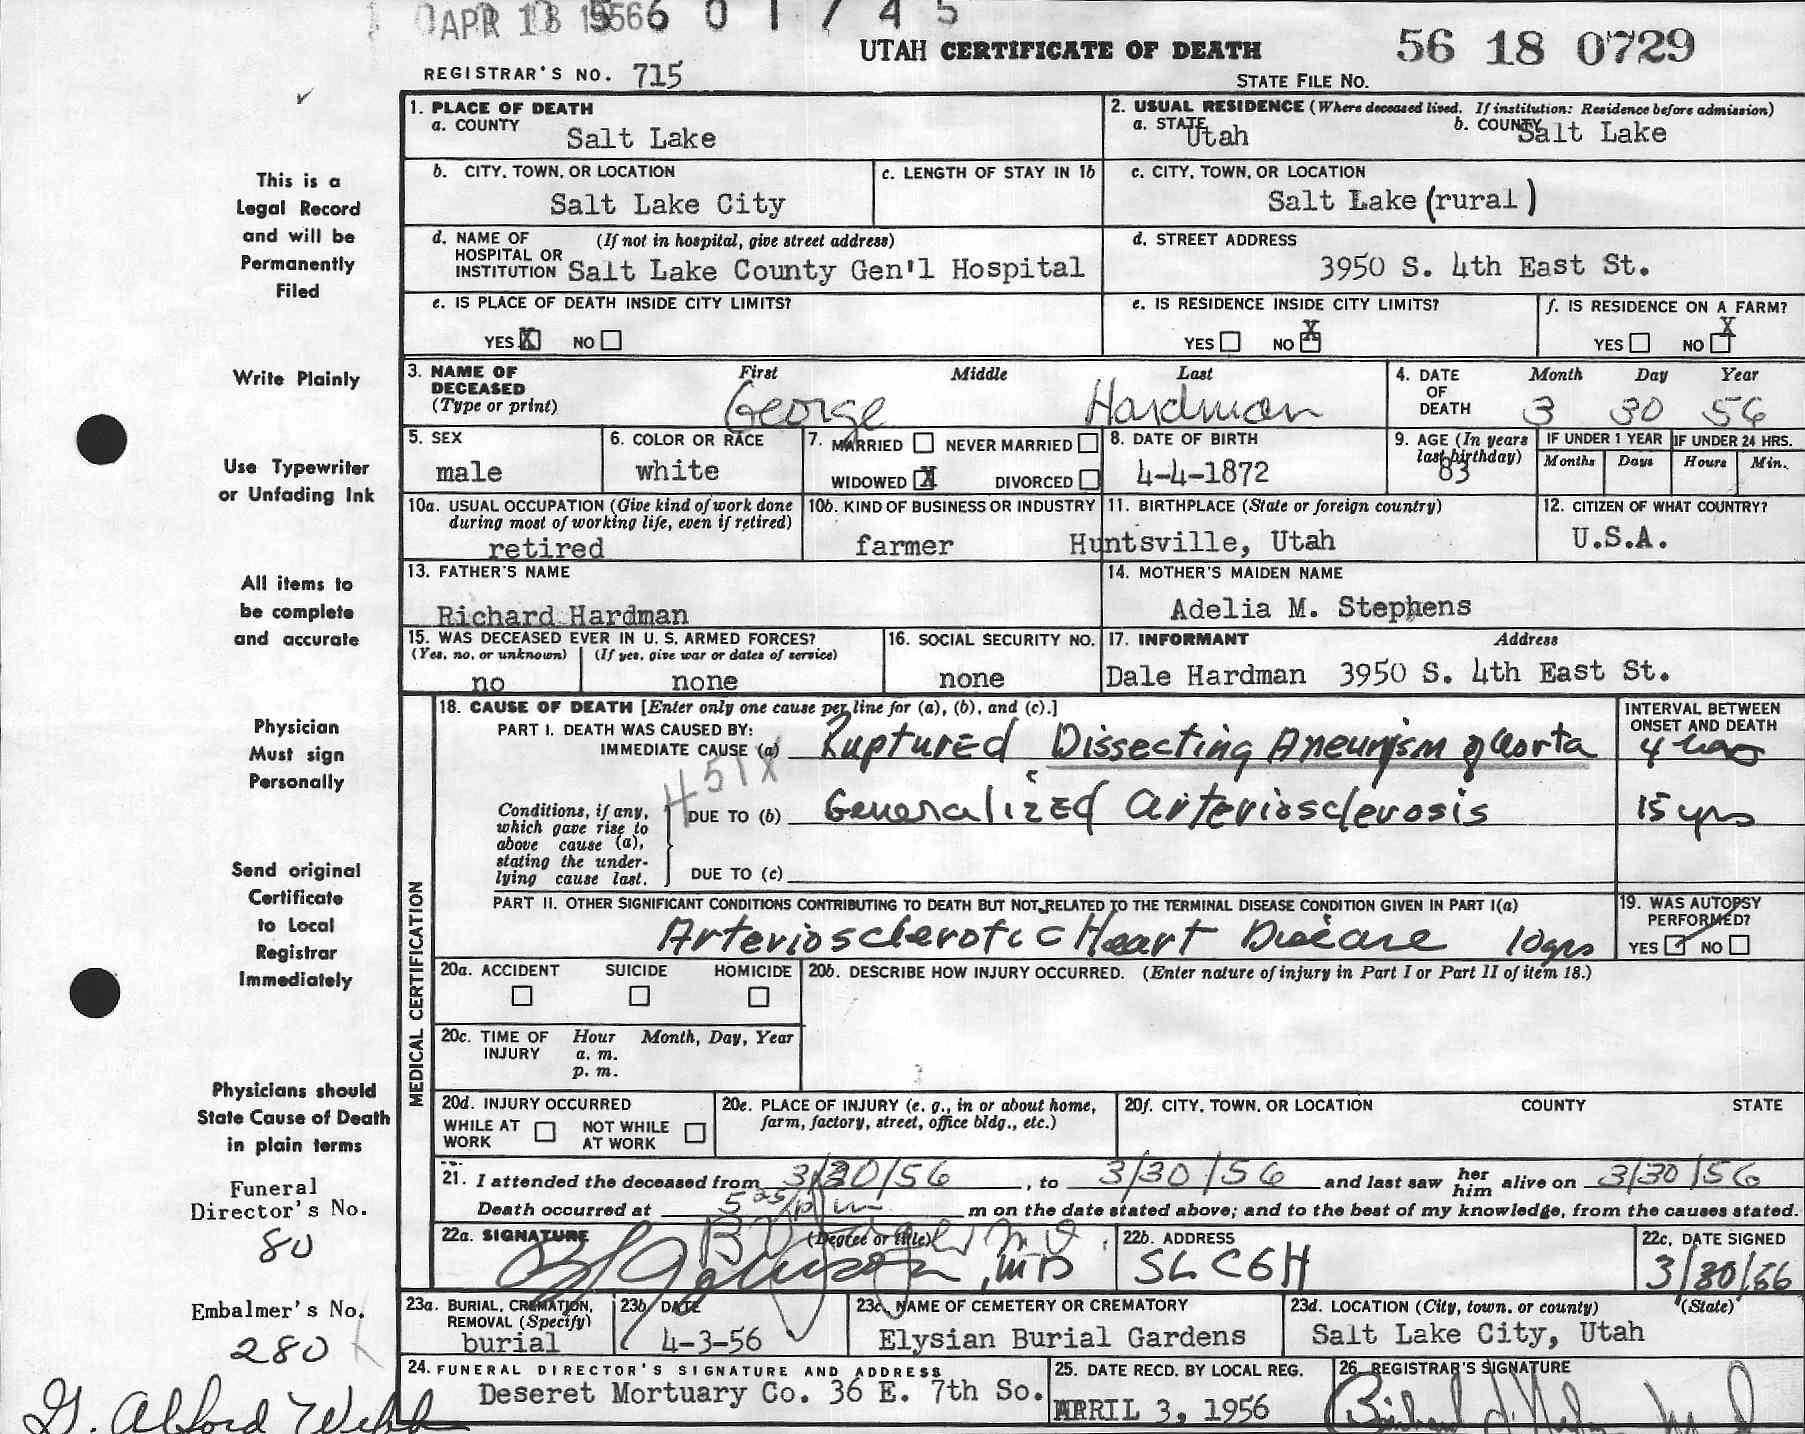 APR 13 1956 6 0 1 7 4 5
UTAH CERTIFICATE OF DEATH 56 18 0729
REGISTRAR'S NO. 715
STATE FILE NO.
This is a
Legal Record
and will be
Permanently
Filed
Write Plainly
Use Typewriter
or Unfading Ink
All items to
be complete
and accurate
Physician
Must sign
Personally
Send original
Certificate
to Local
Registrar
Immediately
Physicians should
State Cause of Death
in plain terms
Funeral
Director's No.
80
Embalmer's No.
280
G. Alford Webb
1. PLACE OF DEATH
a. COUNTY Salt Lake
2. USUAL RESIDENCE (Where deceased lived. If institution: Residence before admission)
a. STATE Utah b. COUNTY Salt Lake
b. CITY, TOWN, OR LOCATION
Salt Lake City
c. LENGTH OF STAY IN 1b
c. CITY, TOWN, OR LOCATION
Salt Lake (rural)
d. NAME OF (If not in hospital, give street address)
HOSPITAL OR
INSTITUTION Salt Lake County Gen'l Hospital
d. STREET ADDRESS
3950 S. 4th East St.
e. IS PLACE OF DEATH INSIDE CITY LIMITS?
YES X NO
e. IS RESIDENCE INSIDE CITY LIMITS?
YES NO X
f. IS RESIDENCE ON A FARM?
YES NO X
3. NAME OF DECEASED (Type or print)
First Middle Last
George Hardman
4. DATE OF DEATH
Month Day Year
3 30 56
5. SEX
male
6. COLOR OR RACE
white
7. MARRIED NEVER MARRIED
WIDOWED X DIVORCED
8. DATE OF BIRTH
4-4-1872
9. AGE (In years
last birthday)
83
IF UNDER 1 YEAR
Months Days
IF UNDER 24 HRS.
Hours Min.
10a. USUAL OCCUPATION (Give kind of work done
during most of working life, even if retired)
retired
10b. KIND OF BUSINESS OR INDUSTRY
farmer
11. BIRTHPLACE (State or foreign country)
Huntsville, Utah
12. CITIZEN OF WHAT COUNTRY?
U.S.A.
13. FATHER'S NAME
Richard Hardman
14. MOTHER'S MAIDEN NAME
Adelia M. Stephens
15. WAS DECEASED EVER IN U. S. ARMED FORCES?
(Yes, no, or unknown) (If yes, give war or dates of service)
no none
16. SOCIAL SECURITY NO.
none
17. INFORMANT Address
Dale Hardman 3950 S. 4th East St.
MEDICAL CERTIFICATION
18. CAUSE OF DEATH [Enter only one cause per line for (a), (b), and (c).]
PART I. DEATH WAS CAUSED BY:
IMMEDIATE CAUSE (a) Ruptured Dissecting Aneurysm of Aorta
451X
Conditions, if any,
which gave rise to
above cause (a),
stating the under-
lying cause last.
DUE TO (b) Generalized arteriosclerosis
DUE TO (c)
INTERVAL BETWEEN
ONSET AND DEATH
4 hrs
15 yrs
PART II. OTHER SIGNIFICANT CONDITIONS CONTRIBUTING TO DEATH BUT NOT RELATED TO THE TERMINAL DISEASE CONDITION GIVEN IN PART I(a)
Arteriosclerotic Heart Disease 10 yrs
19. WAS AUTOPSY
PERFORMED?
YES NO
20a. ACCIDENT SUICIDE HOMICIDE
20b. DESCRIBE HOW INJURY OCCURRED. (Enter nature of injury in Part I or Part II of item 18.)
20c. TIME OF INJURY
Hour Month, Day, Year
a. m.
p. m.
20d. INJURY OCCURRED
WHILE AT WORK NOT WHILE AT WORK
20e. PLACE OF INJURY (e. g., in or about home,
farm, factory, street, office bldg., etc.)
20f. CITY, TOWN, OR LOCATION COUNTY STATE
21. I attended the deceased from 3/30/56, to 3/30/56 and last saw her him alive on 3/30/56
Death occurred at 5 25/pm m on the date stated above; and to the best of my knowledge, from the causes stated.
22a. SIGNATURE (Degree or title)
, MD
22b. ADDRESS
SLCGH
22c. DATE SIGNED
3/30/56
23a. BURIAL, CREMATION,
REMOVAL (Specify)
burial
23b. DATE
4-3-56
23c. NAME OF CEMETERY OR CREMATORY
Elysian Burial Gardens
23d. LOCATION (City, town, or county) (State)
Salt Lake City, Utah
24. FUNERAL DIRECTOR'S SIGNATURE AND ADDRESS
Deseret Mortuary Co. 36 E. 7th So.
25. DATE RECD. BY LOCAL REG.
APRIL 3, 1956
26. REGISTRAR'S SIGNATURE